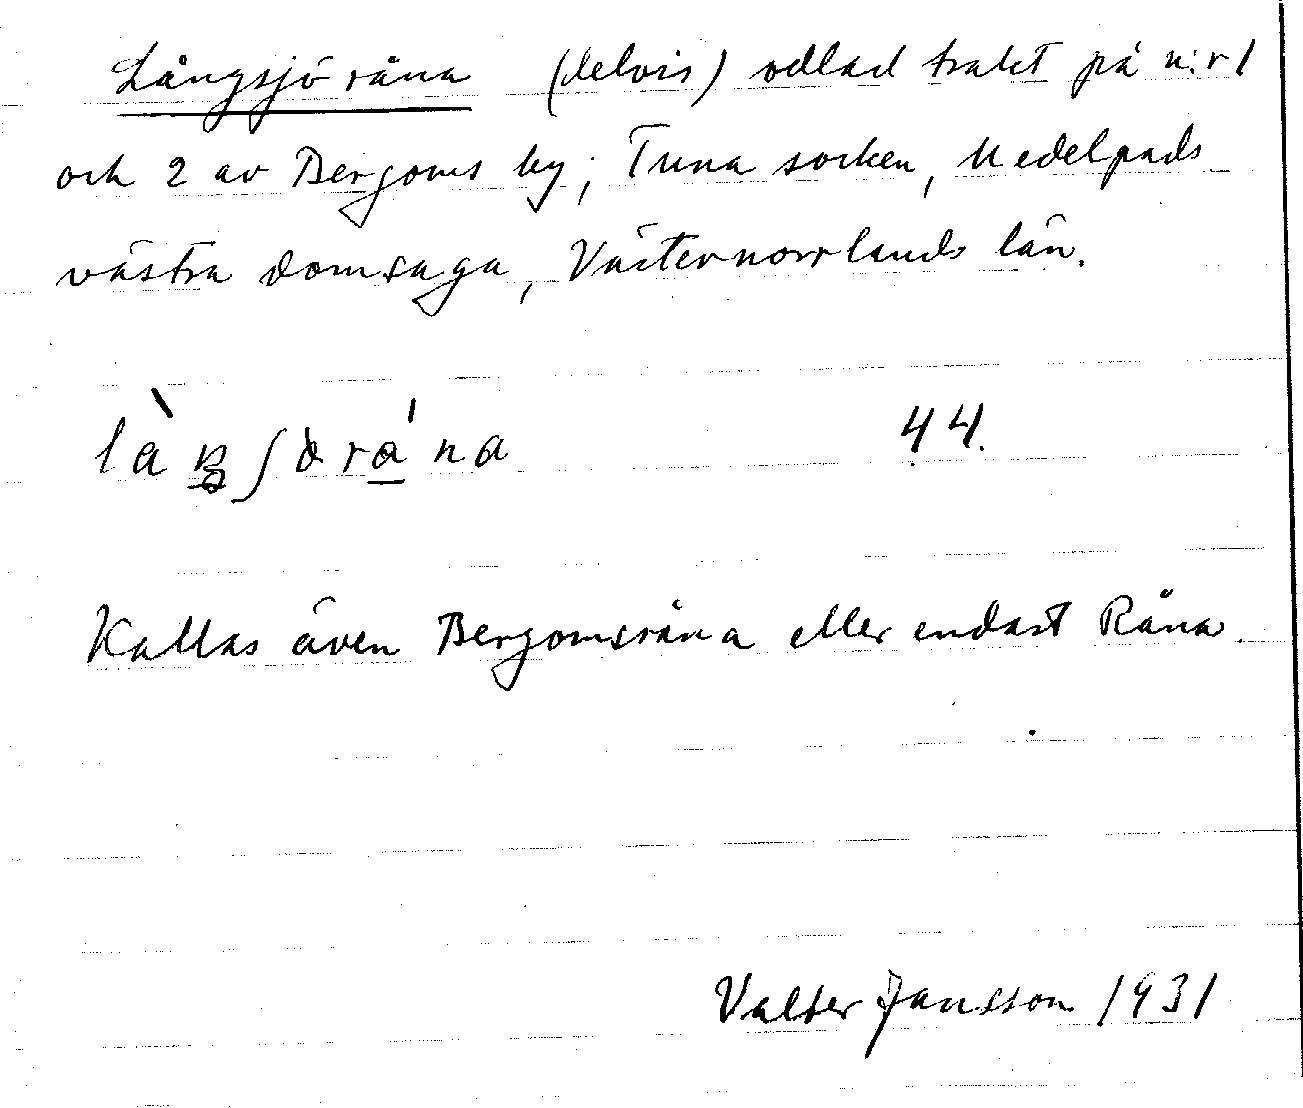 Långsjöråna (delvis) odlad trakt på n:r 1
och 2 av Bergoms by; Tuna socken, Medelpads
västra domsaga, Västernorrlands län.
44.
Kallas även Bergomsråna eller endast Råna.
Valter Jansson 1931